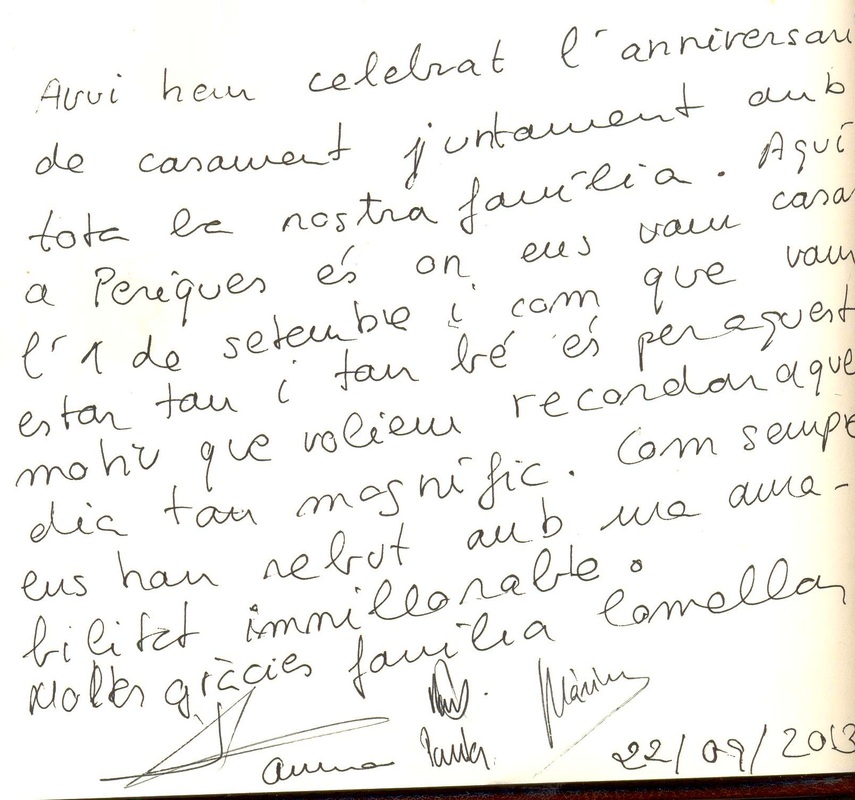 Avui hem celebrat l'anniversari
de casament juntament amb
tota la nostra família. Aquí
a Periques és on ens vam casar
l'1 de setembre i com que vam
estar tan i tan bé és per aquest
motiu que voliem recordar aquell
dia tan magnífic. Com sempre
ens han rebut amb una ama-
bilitat immillorable.
Moltes gràcies família Comellas
Màrius
anna Paula
22/09/2013